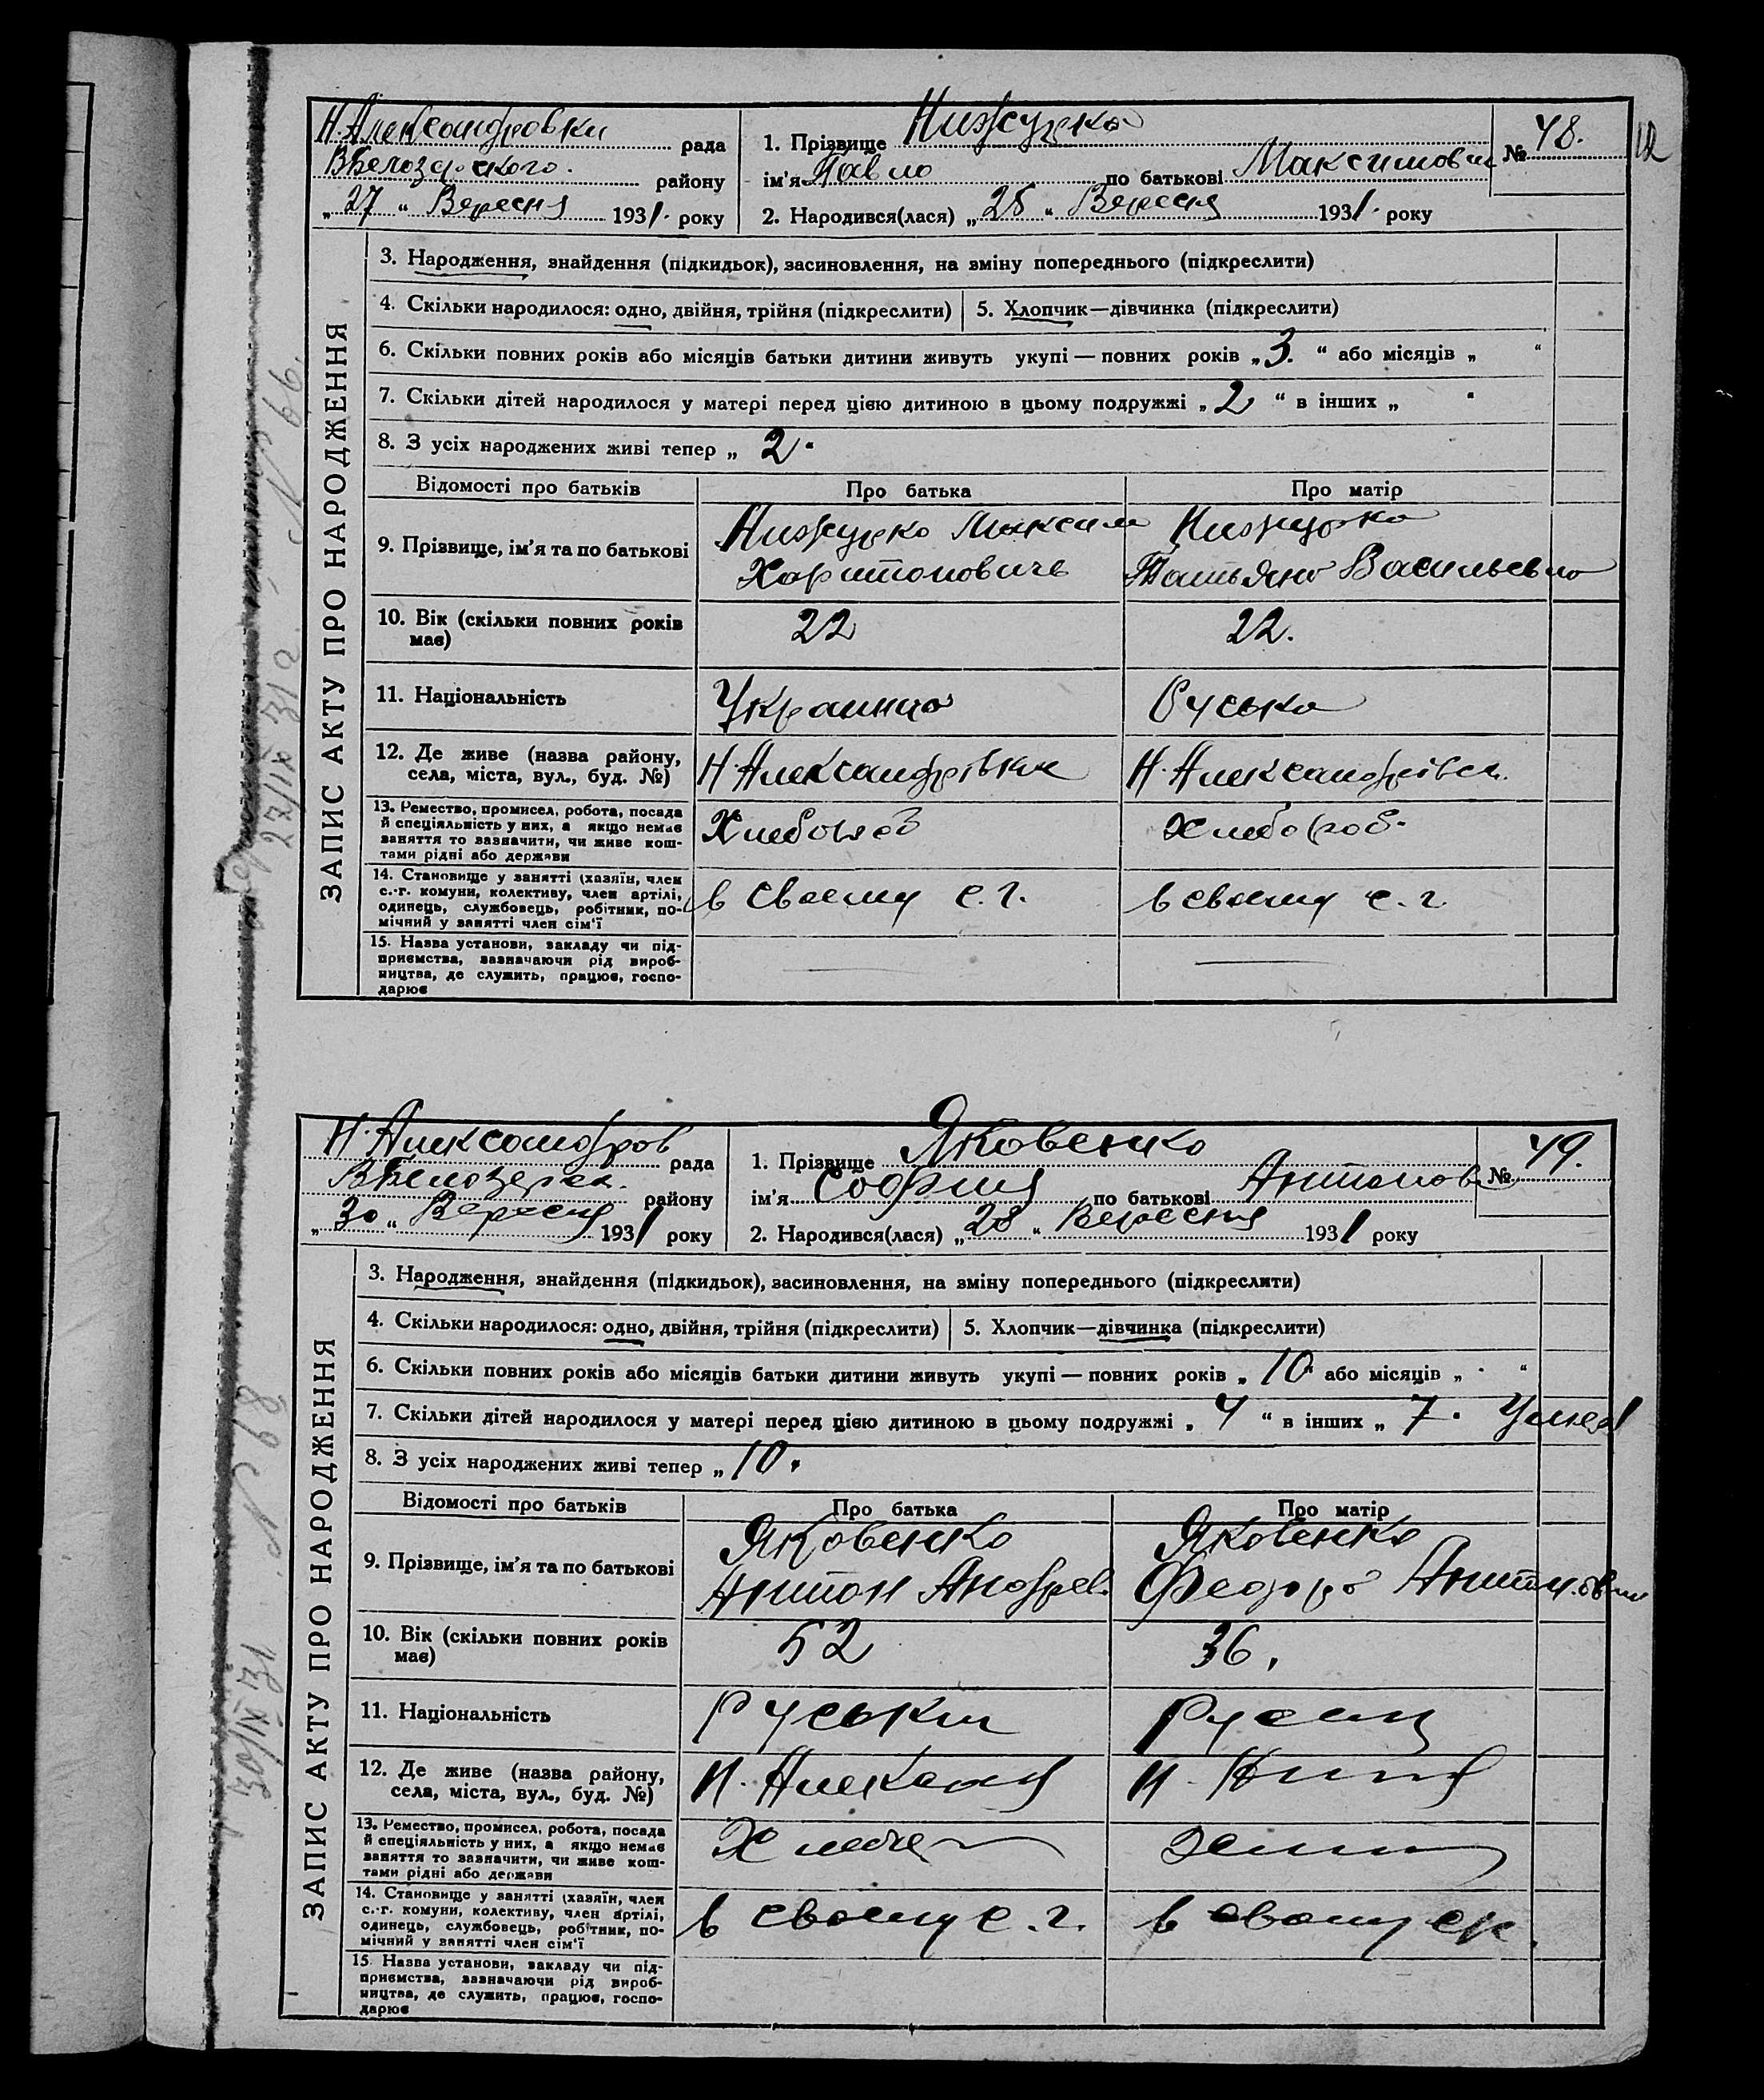 Н. Александровки рада
ВБелозерского. району
„27“ Вересня 1931. року
1. Прізвище
ім'я Павло по батькові Максимович
2. Народився(лася) „ “ Вересня 1931. року
№ 48.
12
ЗАПИС АКТУ ПРО НАРОДЖЕННЯ
3. Народження, знайдення (підкидьок), засиновлення, на зміну попереднього (підкреслити)
4. Скільки народилося: одно, двійня, трійня (підкреслити) 5. Хлопчик—дівчинка (підкреслити)
6. Скільки повних років або місяців батьки дитини живуть укупі — повних років „3.“ або місяців „ “
7. Скільки дітей народилося у матері перед цією дитиною в цьому подружжі „2“ в інших „ “
8. З усіх народжених живі тепер „2.
Відомості про батьків Про батька Про матір
9. Прізвище, ім'я та по батькові
Максим
Харитоновичь
Татьяна Васильевна
10. Вік (скільки повних років
має)
22 22.
11. Національність
Украинцо Руська
12. Де живе (назва району,
села, міста, вул., буд. №)
Н. Александрівка Н. Александрівка
13. Ремество, промисел, робота, посада
й спеціяльність у них, а якщо немає
заняття то зазначити, чи живе кош-
тами рідні або держави
Хлебороб Хлебороб.
14. Становище у занятті (хазяїн, член
с.-г. комуни, колективу, член артілі,
одинець, службовець, робітник, по-
мічний у занятті член сім'ї
в своему с. г. в своему с. г
15. Назва установи, закладу чи під-
приємства, зазначаючи рід вироб-
ництва, де служить, працює, госпо-
дарює
27/IX 31 № 66.
Н. Александров рада
ВБелозерск. району
„30“ Вересня 1931 року
1. Прізвище Яковенко
ім'я София по батькові Антонов
2. Народився(лася) „28“ Вересня 1931 року
№ 49.
ЗАПИС АКТУ ПРО НАРОДЖЕННЯ
3. Народження, знайдення (підкидьок), засиновлення, на зміну попереднього (підкреслити)
4. Скільки народилося: одно, двійня, трійня (підкреслити) 5. Хлопчик—дівчинка (підкреслити)
6. Скільки повних років або місяців батьки дитини живуть укупі — повних років „10“ або місяців „ “
7. Скільки дітей народилося у матері перед цією дитиною в цьому подружжі „4“ в інших „7.
8. З усіх народжених живі тепер „10.
Відомості про батьків Про батька Про матір
9. Прізвище, ім'я та по батькові
Яковенко
Антон Андрев.
Яковенко
Федора Антоновна
10. Вік (скільки повних років
має)
52 36.
11. Національність
Руськи
12. Де живе (назва району,
села, міста, вул., буд. №)
13. Ремество, промисел, робота, посада
й спеціяльність у них, а якщо немає
заняття то зазначити, чи живе кош-
тами рідні або держави
14. Становище у занятті (хазяїн, член
с.-г. комуни, колективу, член артілі,
одинець, службовець, робітник, по-
мічний у занятті член сім'ї
в своему с. г. в своему
15. Назва установи, закладу чи під-
приємства, зазначаючи рід вироб-
ництва, де служить, працює, госпо-
дарює
30/IX 31 № 68